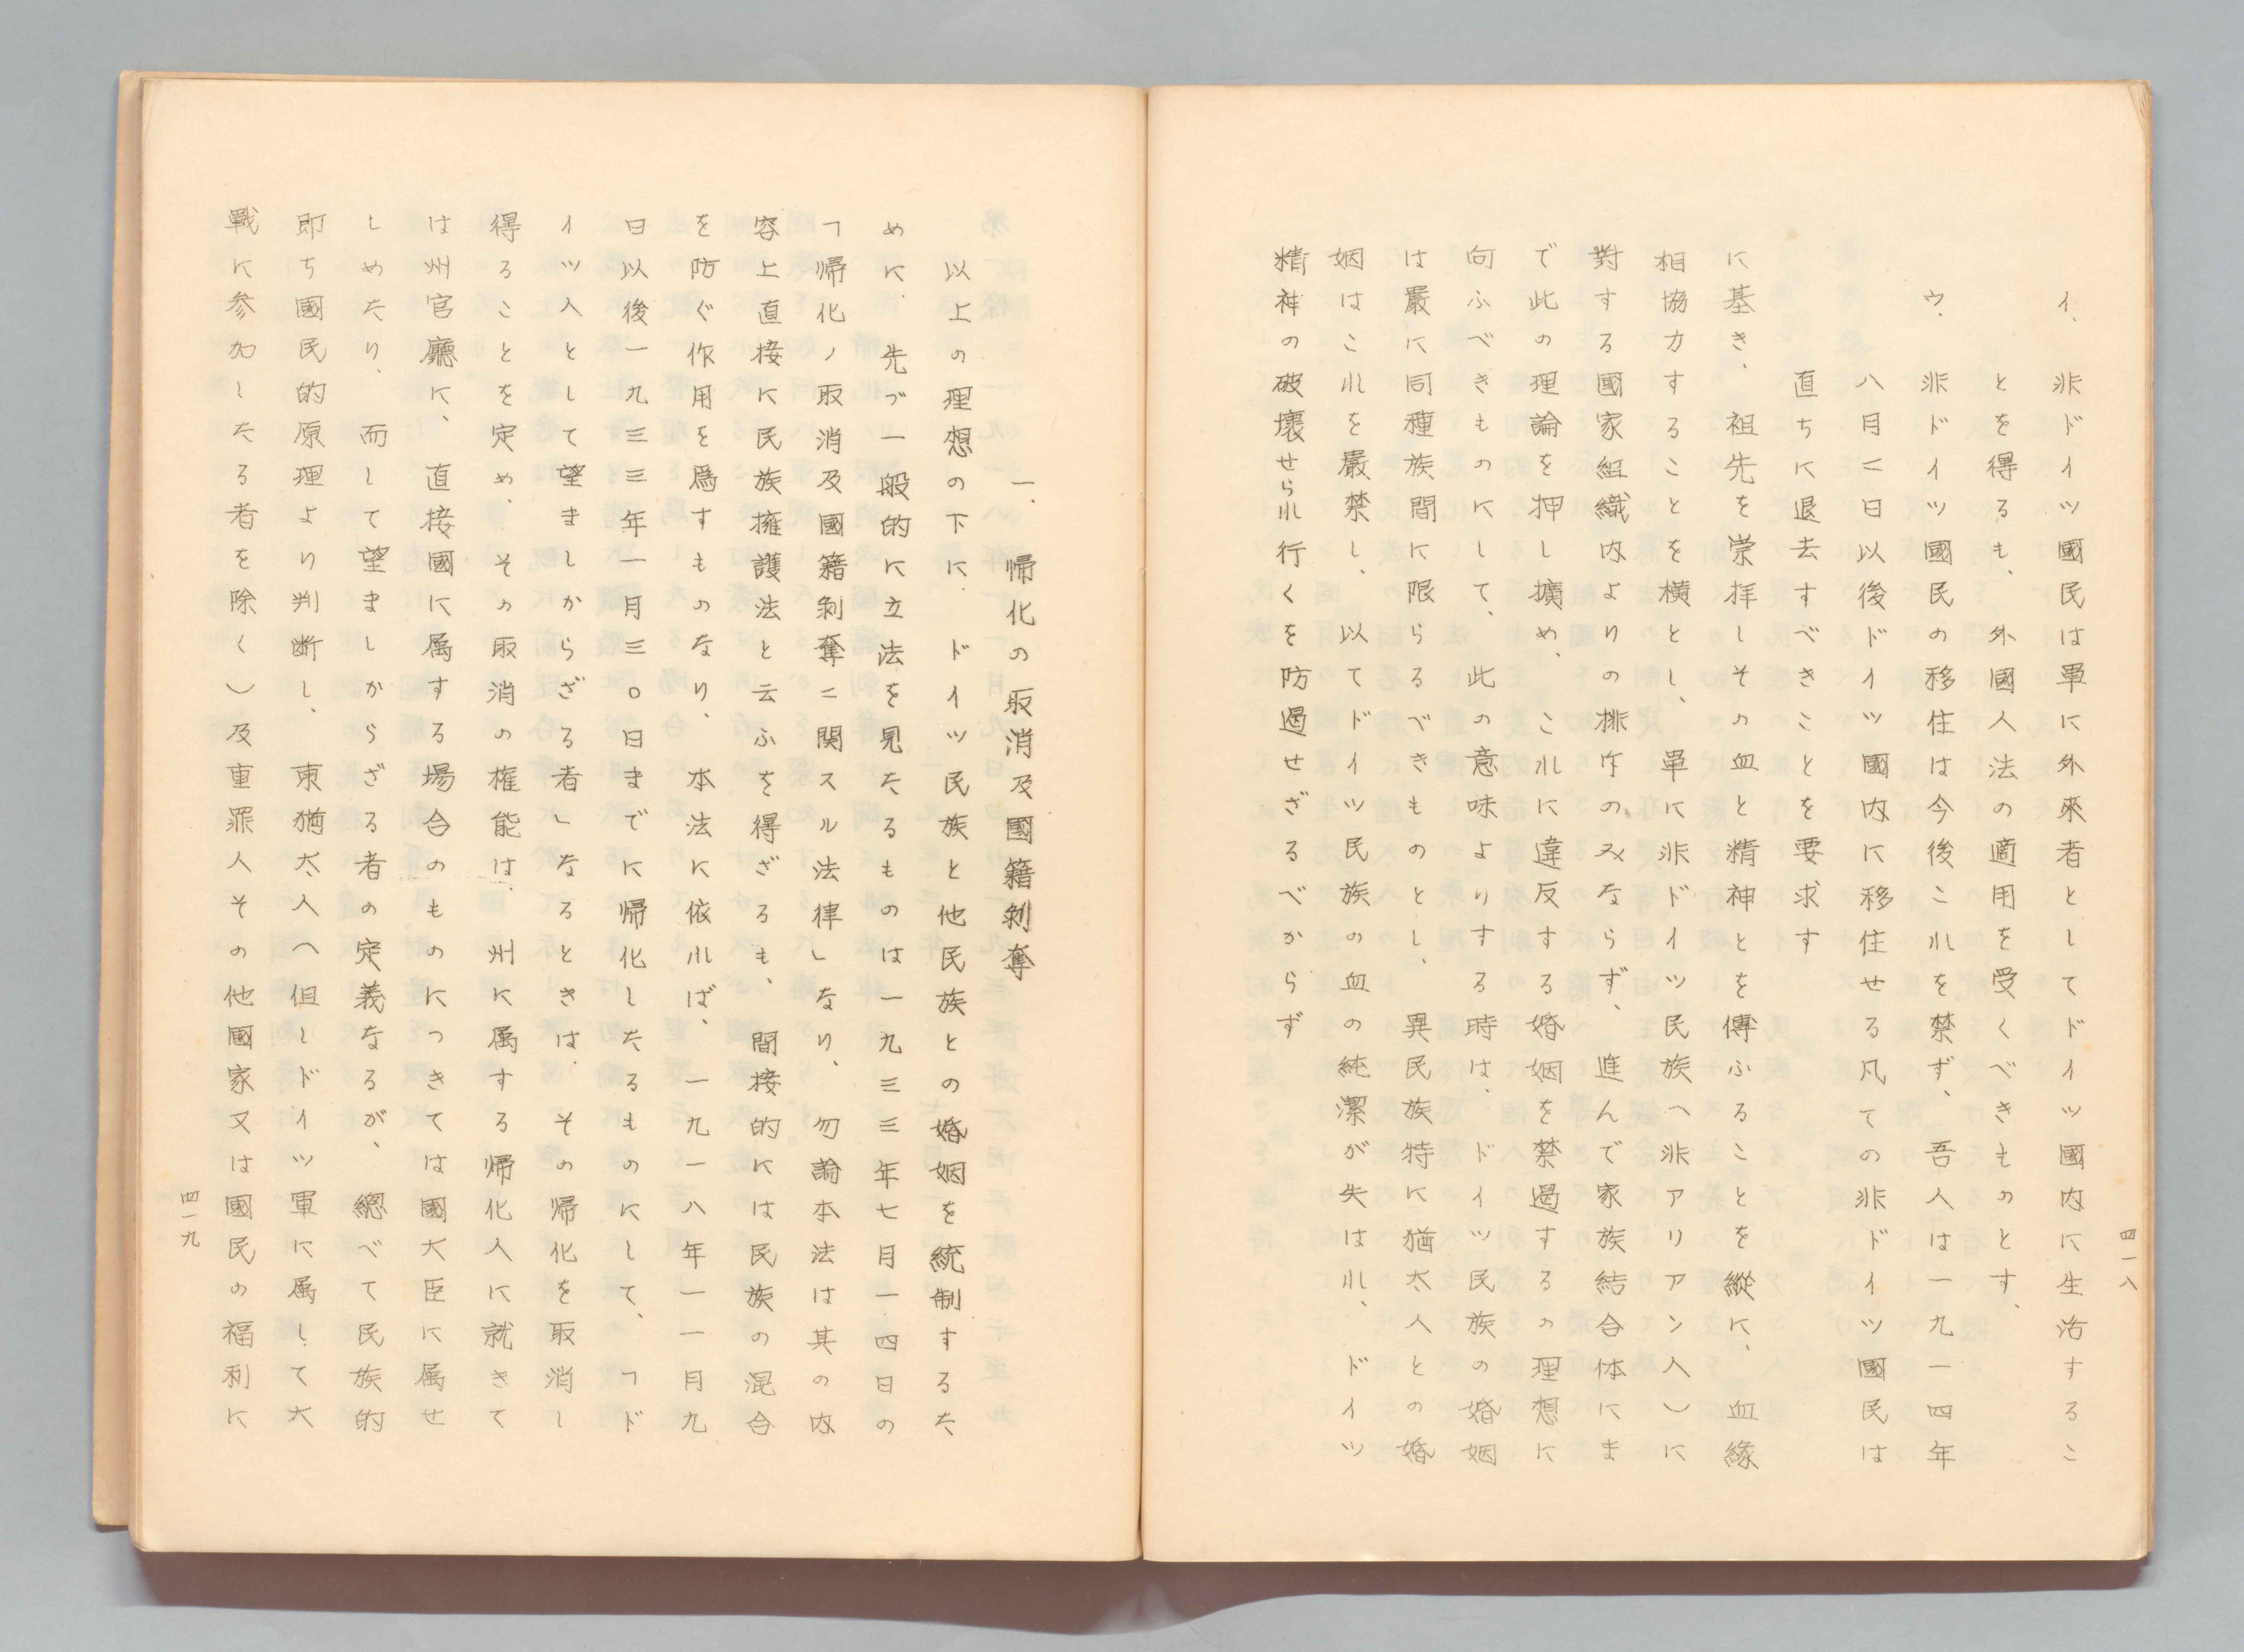 四一八
イ、非ドイツ國民は單に外來者としてドイツ國内に生活するこ
とを得るも、外國人法の適用を受くべきものとす、
ウ、非ドイツ國民の移住は今後これを禁ず、吾人は一九一四年
八月二日以後ドイツ國内に移住せる凡ての非ドイツ國民は
直ちに退去すべきことを要求す
に基き、祖先を崇拝しその血と精神とを傳ふることを縱に、血緣
相協力することを橫とし、單に非ドイツ民族へ非アリアン人)に
對する國家組織内よりの排斥のみならず、進んで家族結合体にま
で此の理論を押し擴め、これに違反する婚姻を禁遏するの理想に
向ふべきものにして、此の意味よりする時は、ドイツ民族の婚姻
は嚴に同種族間に限らるべきものとし、異民族特に猶太人との婚
姻はこれを嚴禁し、以てドイツ民族の血の純潔が失はれ、ドイツ
精神の破壞せられ行くを防遏せざるべからず
一、歸化の取消及國籍剝奪
以上の理想の下に、ドイツ民族と他民族との婚姻を統制するた
めに、先づ一般的に立法を見たるものは一九三三年七月一四日の
「帰化ノ取消及國籍剝奪ニ関スル法律」なり、勿論本法は其の内
容上直接に民族擁護法と云ふを得ざるも、間接的には民族の混合
を防ぐ作用を爲すものなり、本法に依れば、一九一八年一一月九
日以後一九三三年一月三〇日までに帰化したるものにして、「ド
イツ人として望ましからざる者」なるときは、その帰化を取消し
得ることを定め、その取消の権能は、州に属する帰化人に就きて
は州官廳に、直接國に属する場合のものにつきては國大臣に属せ
しめたり、而して望ましからざる者の定義なるが、總べて民族的
即ち國民的原理より判断し、東猶太人へ但しドイツ軍に属して大
戰に参加したる者を除く)及重罪人その他國家又は國民の福利に
四一九